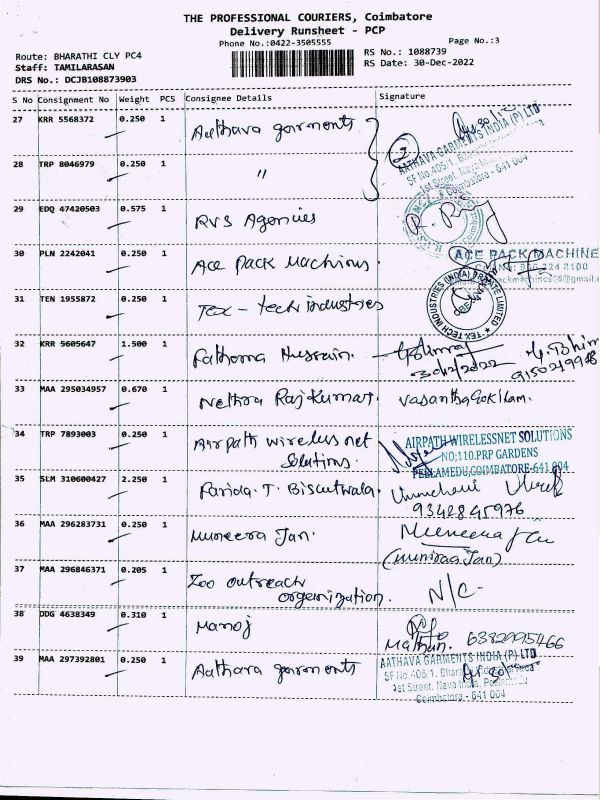 THE PROFESSIONAL COURIERS, Coimbatore
Delivery Runsheet - PCP
Phone No.:0422-3505555
Page No.:3
Route: BHARATHI CLY PC4
RS No.: 1088739
Staff: TAMILARASAN
RS Date: 30-Dec-2022
DRS No.: DCJB108873903
S No Consignment No Weight PCS Consignee Details Signature
27 KRR 5568372 0.250 1 Aathava garments
AATHAVA GARMENTS INDIA (P) LTD
SF No.405/1,
1st Street,
Coimbatore - 641 004
2
28 TRP 8046979 0.250 1 "
29 EDQ 47420503 0.575 1 RVS Agencies
30 PLN 2242041 0.250 1 Ace Pack Machines.
ACE PACK MACHINE
31 TEN 1955872 0.250 1 Tex - tech industries
TEX TECH INDUSTRIES (INDIA) PRIVATE LIMITED
32 KRR 5605647 1.500 1 Fathema Hussain.
30/12/2022
33 MAA 295034957 0.670 1 Nethra Raj Kumar. Vasantha Gokilam.
34 TRP 7893003 0.250 1 Airpath wireless net
Solutions.
AIRPATH WIRELESSNET SOLUTIONS
NO;110.PRP GARDENS
PEELAMEDU,COIMBATORE-641 004
35 SLM 310600427 2.250 1 Farida. T. Biscutwala.
9342845976
36 MAA 296283731 0.250 1 Muneera Jan.
37 MAA 296846371 0.205 1 Zoo outreach
organization. N/C-
38 DDG 4638349 0.310 1 Manoj
6382995466
39 MAA 297392801 0.250 1 Aathava garments
AATHAVA GARMENTS INDIA (P) LTD
SF No.405/1,
1st Street, Nava India,
Coimbatore - 641 004